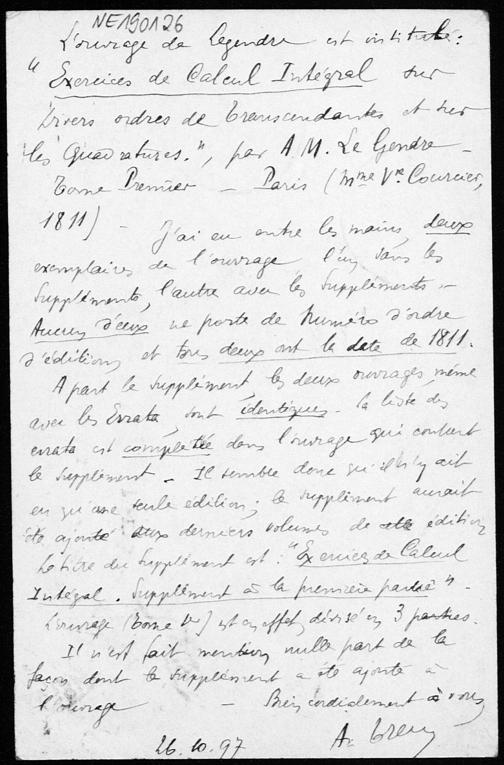 NE190A26
L'ouvrage de Legendre est intitulé :
" Exercices de Calcul Intégral sur
divers ordres de transcendantes et sur
les quadratures.", par A. M. Le Gendre _
Tome Premier _ Paris (Mme Vve Courcier,
1811) - J'ai eu entre les mains, deux
exemplaires de l'ouvrage l'un sans les
Suppléments, l'autre avec les Suppléments.-
Aucun d'eux ne porte de Numéro d'ordre
d'édition, et tous deux ont la date de 1811.
A part le supplément les deux ouvrages, même
avec les Errata, sont identiques - la liste des
errata est complétée dans l'ouvrage qui contient
le Supplément _ Il semble donc qu'il n'y ait
eu qu'une seule édition; le supplément aurait
été ajouté aux derniers volumes de cette édition
Le titre du Supplément est : "Exercices de Calcul
Intégral. Supplément à la première partie" -
L'ouvrage (Tome 1er) est en effet, divisé en 3 parties.
Il n'est fait mention nulle part de la
façon dont le Supplément a été ajouté à
l'ouvrage - Bien cordialement à vous
26.10.97